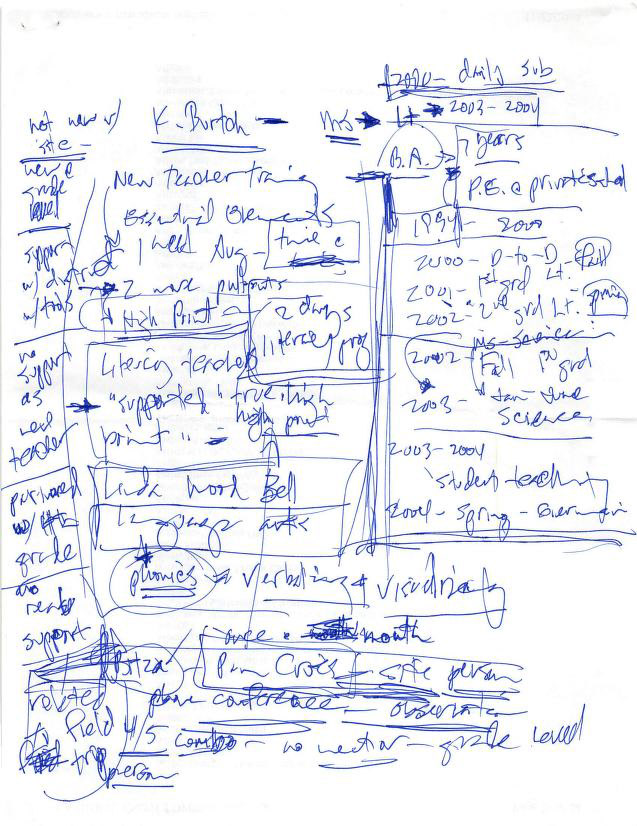 2000 - daily sub
Lt → 2003 - 2004
K. Burton — MS →
B.A. → 7 years
P.E. @ private
1994 - 2000
2000 - D-to-D - Fall
2001 - 1st grd Lt.
2002 - 2nd grd Lt.
2002 - MS - Science in
Fall
2003 - Jan - June
Science
2003 - 2004
Student teaching
2004 - Spring -
not new w/
site -
new @
grade
level
support
w/ district
w/ tools
no
support
as
new
teacher
partnered
w/
grade
no
support
New teacher training
Essential Elements
1 week Aug -
2 more
High Print
2 days
literacy prog
Literacy teacher
"supported" true high
high point
print" -
Linda Mood Bell
Language arts
phonics → verbalizing + visualizing
once a month
Pam — site person
phone conference - observation
related
to field
trip
4/5 combo - no - grade level
person